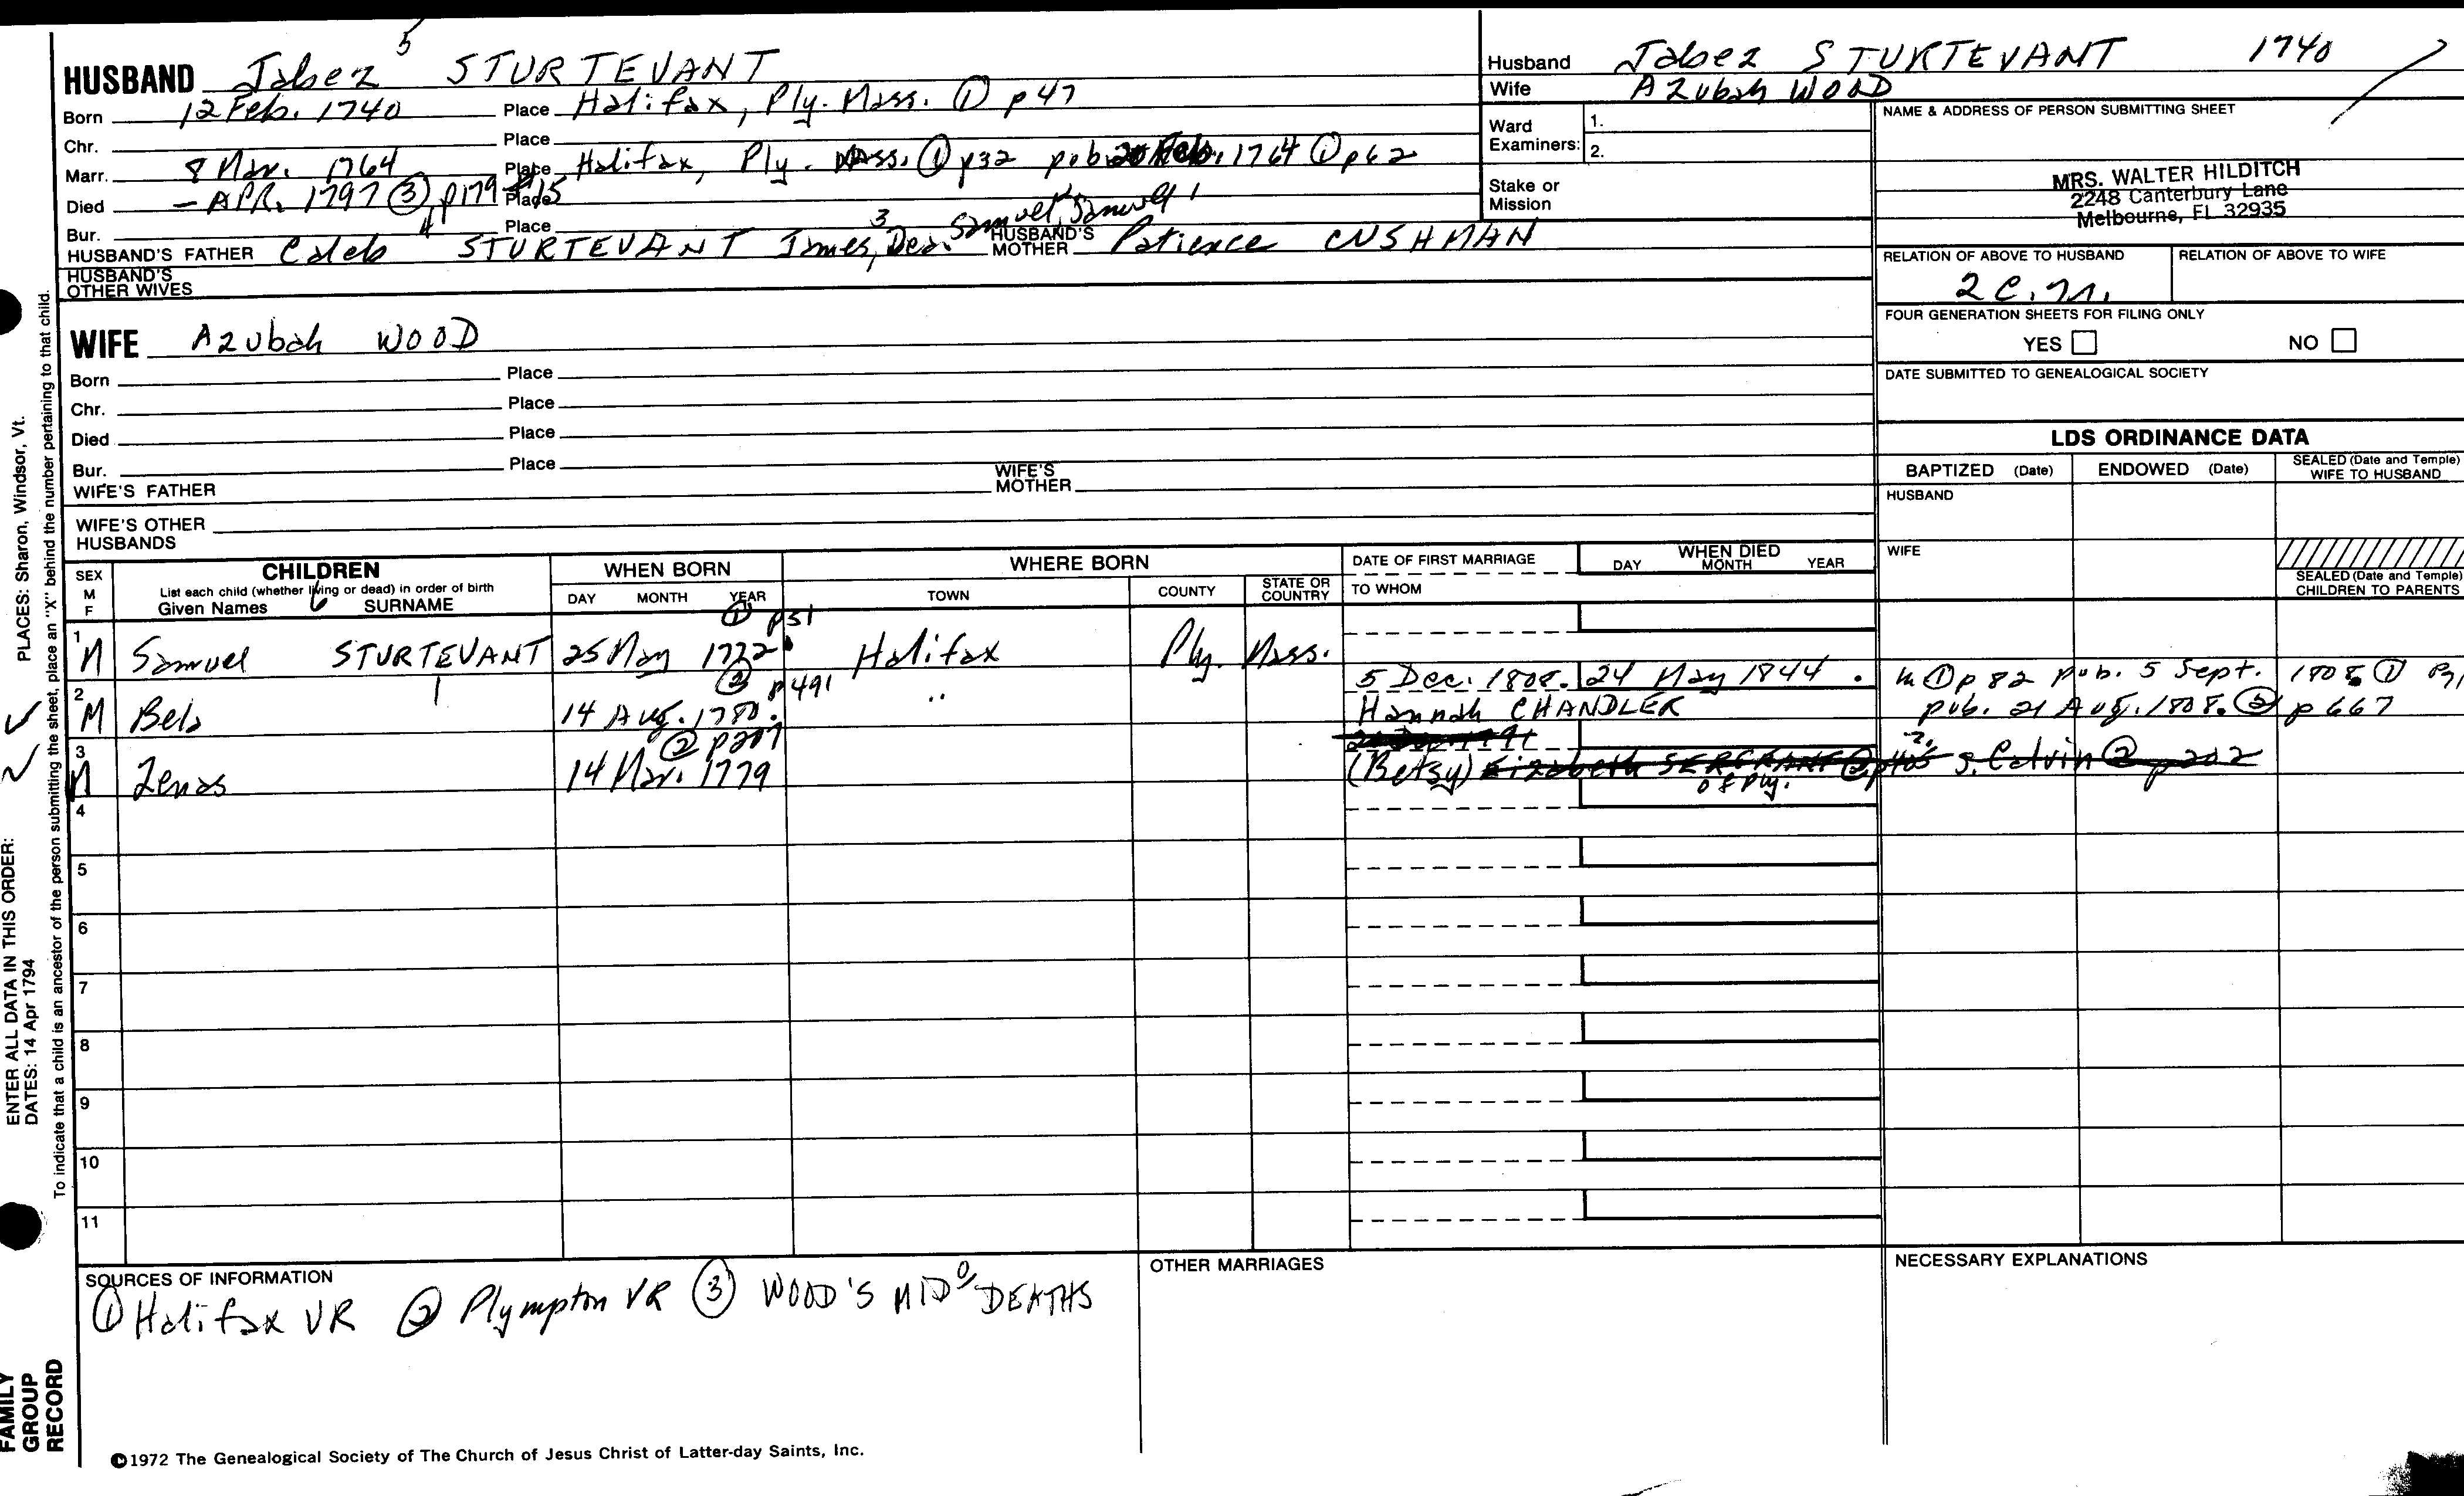 HUSBAND Jabez 5 STURTEVANT
Born 12 Feb. 1740 Place Halifax, Ply. Mass. ① p47
Chr. Place
Marr. 8 Mar. 1764 Place Halifax, Ply. Mass. ① p32 pub. Feb. 1764 ① p62
Died - APR. 1797 ③ p179 Place
Bur. Place
HUSBAND'S FATHER Caleb 4 STURTEVANT James, 3 Dea. Samuel, 2 Samuel 1 HUSBAND'S MOTHER Patience CUSHMAN
HUSBAND'S OTHER WIVES
WIFE Azubah WOOD
Born Place
Chr. Place
Died Place
Bur. Place
WIFE'S FATHER WIFE'S MOTHER
WIFE'S OTHER HUSBANDS
Husband Jabez STURTEVANT 1740
Wife Azubah WOOD
Ward Examiners: 1.
2.
Stake or Mission
NAME & ADDRESS OF PERSON SUBMITTING SHEET
MRS. WALTER HILDITCH
2248 Canterbury Lane
Melbourne, FL 32935
RELATION OF ABOVE TO HUSBAND RELATION OF ABOVE TO WIFE
2 C.
FOUR GENERATION SHEETS FOR FILING ONLY
YES NO
DATE SUBMITTED TO GENEALOGICAL SOCIETY
LDS ORDINANCE DATA
BAPTIZED (Date) ENDOWED (Date) SEALED (Date and Temple) WIFE TO HUSBAND
HUSBAND
WIFE
SEALED (Date and Temple) CHILDREN TO PARENTS
SEX M F
CHILDREN
List each child (whether living or dead) in order of birth
Given Names 6 SURNAME
WHEN BORN
DAY MONTH YEAR
WHERE BORN
TOWN COUNTY STATE OR COUNTRY
DATE OF FIRST MARRIAGE
TO WHOM
WHEN DIED
DAY MONTH YEAR
① p51
1 M Samuel STURTEVANT 25 May 1772 Halifax Ply. Mass.
② p491
5 Dec. 1808. 24 May 1844 m ① p 82 pub. 5 Sept. 1808 ①
2 M Bela 14 Aug. 1780. " Hannah CHANDLER pub. 21 Aug. 1808. ② p 667
② p207
3 M Zenas 14 Mar. 1779 (Betsy) Elizabeth SERGEANT ② p405 S. Calvin ② p202
of Ply.
4
5
6
7
8
9
10
11
SOURCES OF INFORMATION
① Halifax VR ② Plympton VR ③ WOOD'S MID° DEATHS
OTHER MARRIAGES
NECESSARY EXPLANATIONS
©1972 The Genealogical Society of The Church of Jesus Christ of Latter-day Saints, Inc.
PLACES: Sharon, Windsor, Vt.
ENTER ALL DATA IN THIS ORDER:
DATES: 14 Apr 1794
To indicate that a child is an ancestor of the person submitting the sheet, place an "X" behind the number pertaining to that child.
FAMILY GROUP RECORD